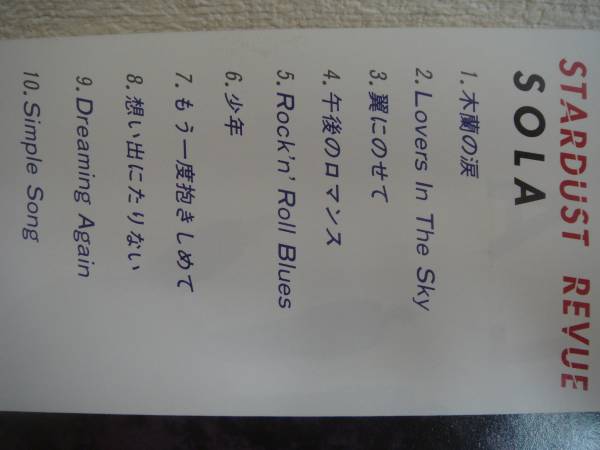 STARDUST REVUE
SOLA
1.木蘭の涙
2.Lovers In The Sky
3.翼にのせて
4.午後のロマンス
5.Rock'n' Roll Blues
6.少年
7.もう一度抱きしめて
8.想い出にたりない
9.Dreaming Again
10.Simple Song